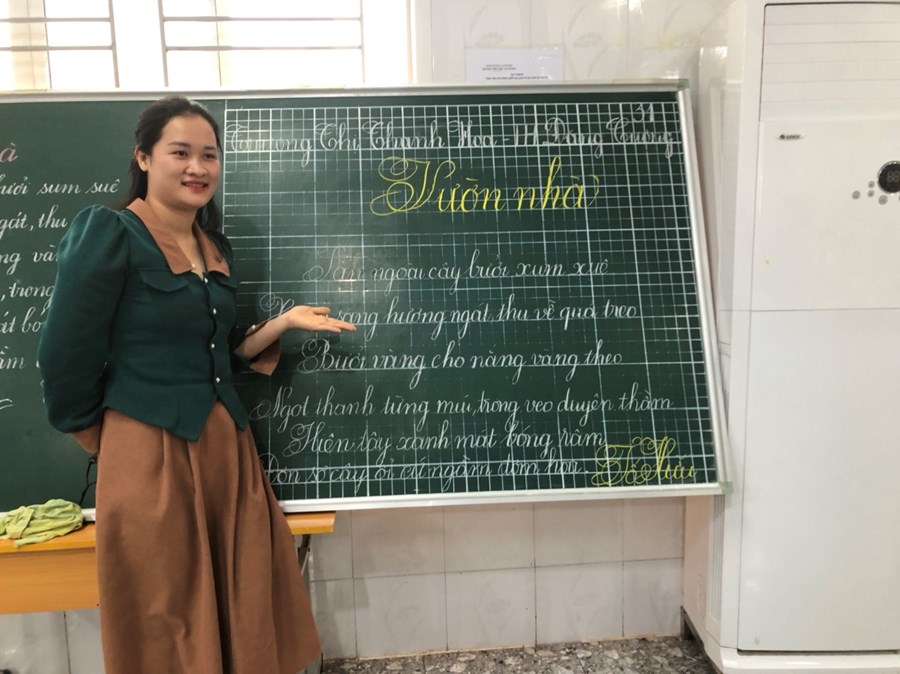 à
bưởi sum suê
ngát, thu
vàng
, trong
31
Trương Thị Thanh Hoa - TH Đồng Tương
Vườn nhà
Sân ngoài cây bưởi xum xuê
sang hương ngát, thu về quả treo
Bưởi vàng cho nắng vàng theo
Ngọt thanh từng múi, trong veo duyên thầm
Hiên tây xanh mát bóng râm
Đơn sơ cây ổi cứ ngầm đơm hoa
Tố Hữu
GREE